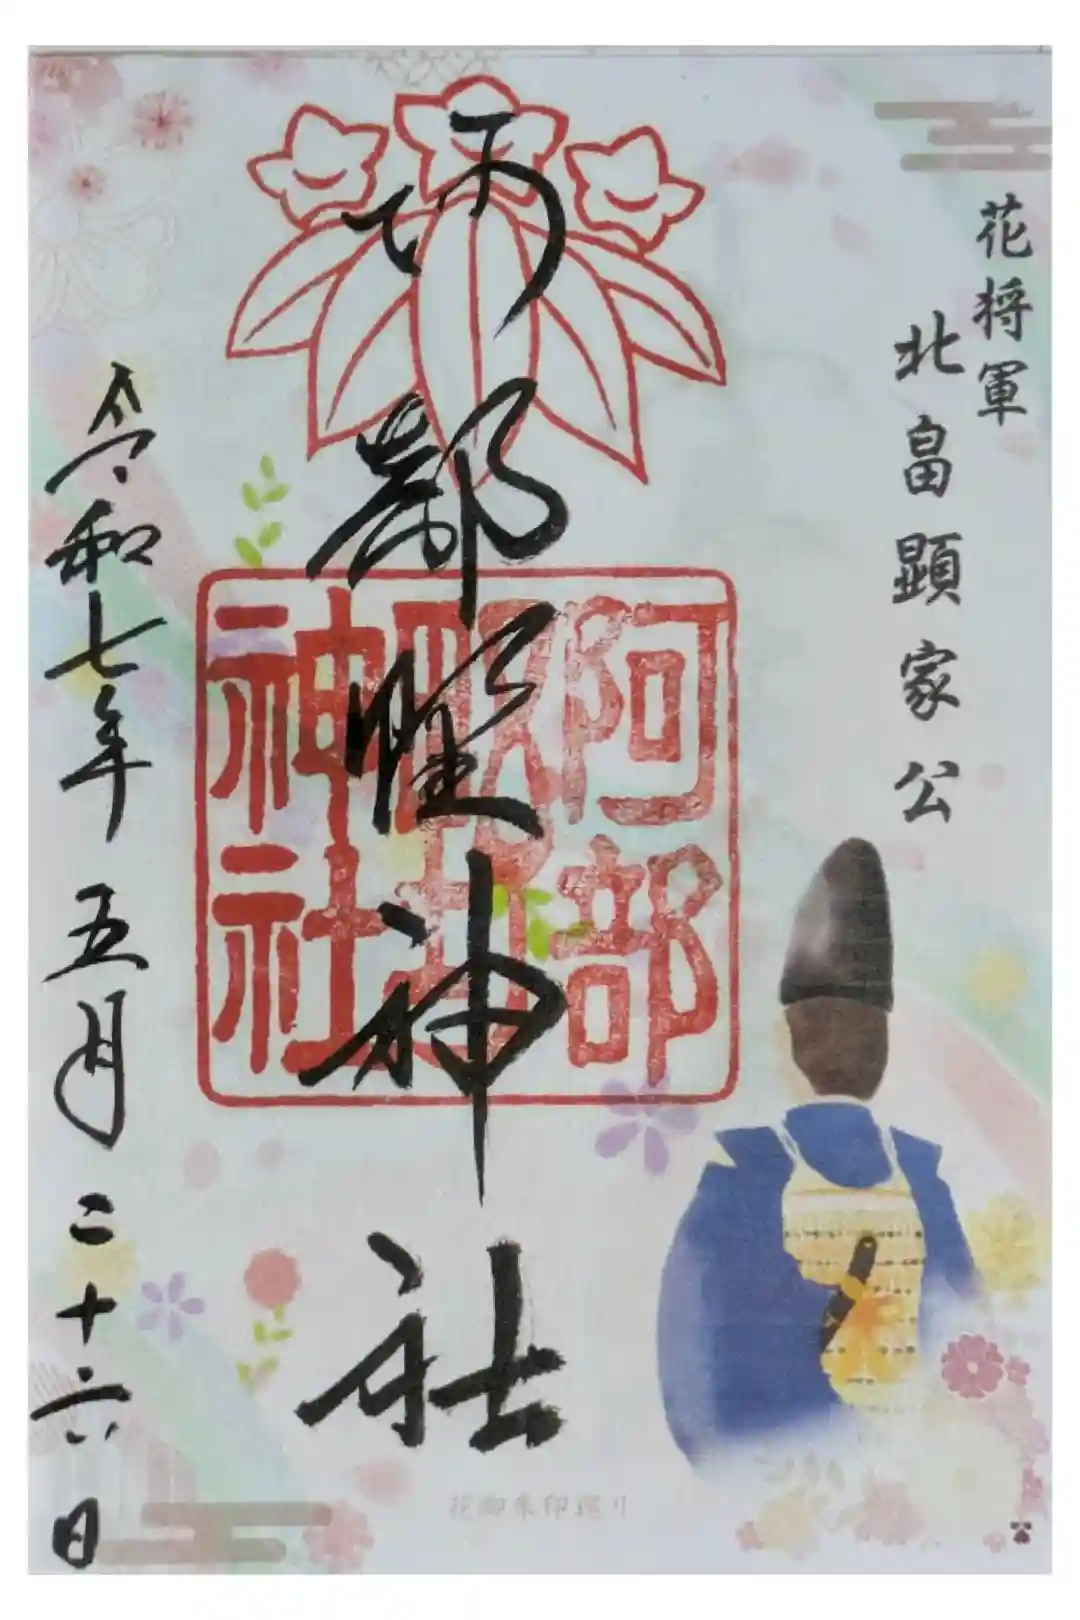 花将軍
北畠顕家公
阿部野神社
阿部
野
神社
令和七年五月二十六日
花御朱印巡り